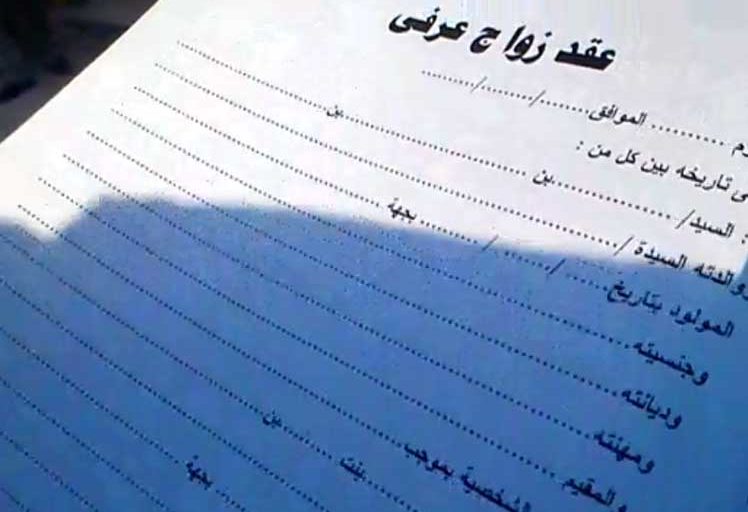 عقد زواج عرفى
الموافق ....../....../......
تاريخه بين كل من :
السيد/ ............ بن ............ بن ............
والدته السيدة / ............
المولود بتاريخ ....../....../...... بجهة ............
وجنسيته ............
وديانته ............
ومهنته ............
والمقيم ............
الشخصية بموجب ............
بنت ............ بن ............
بجهة ............